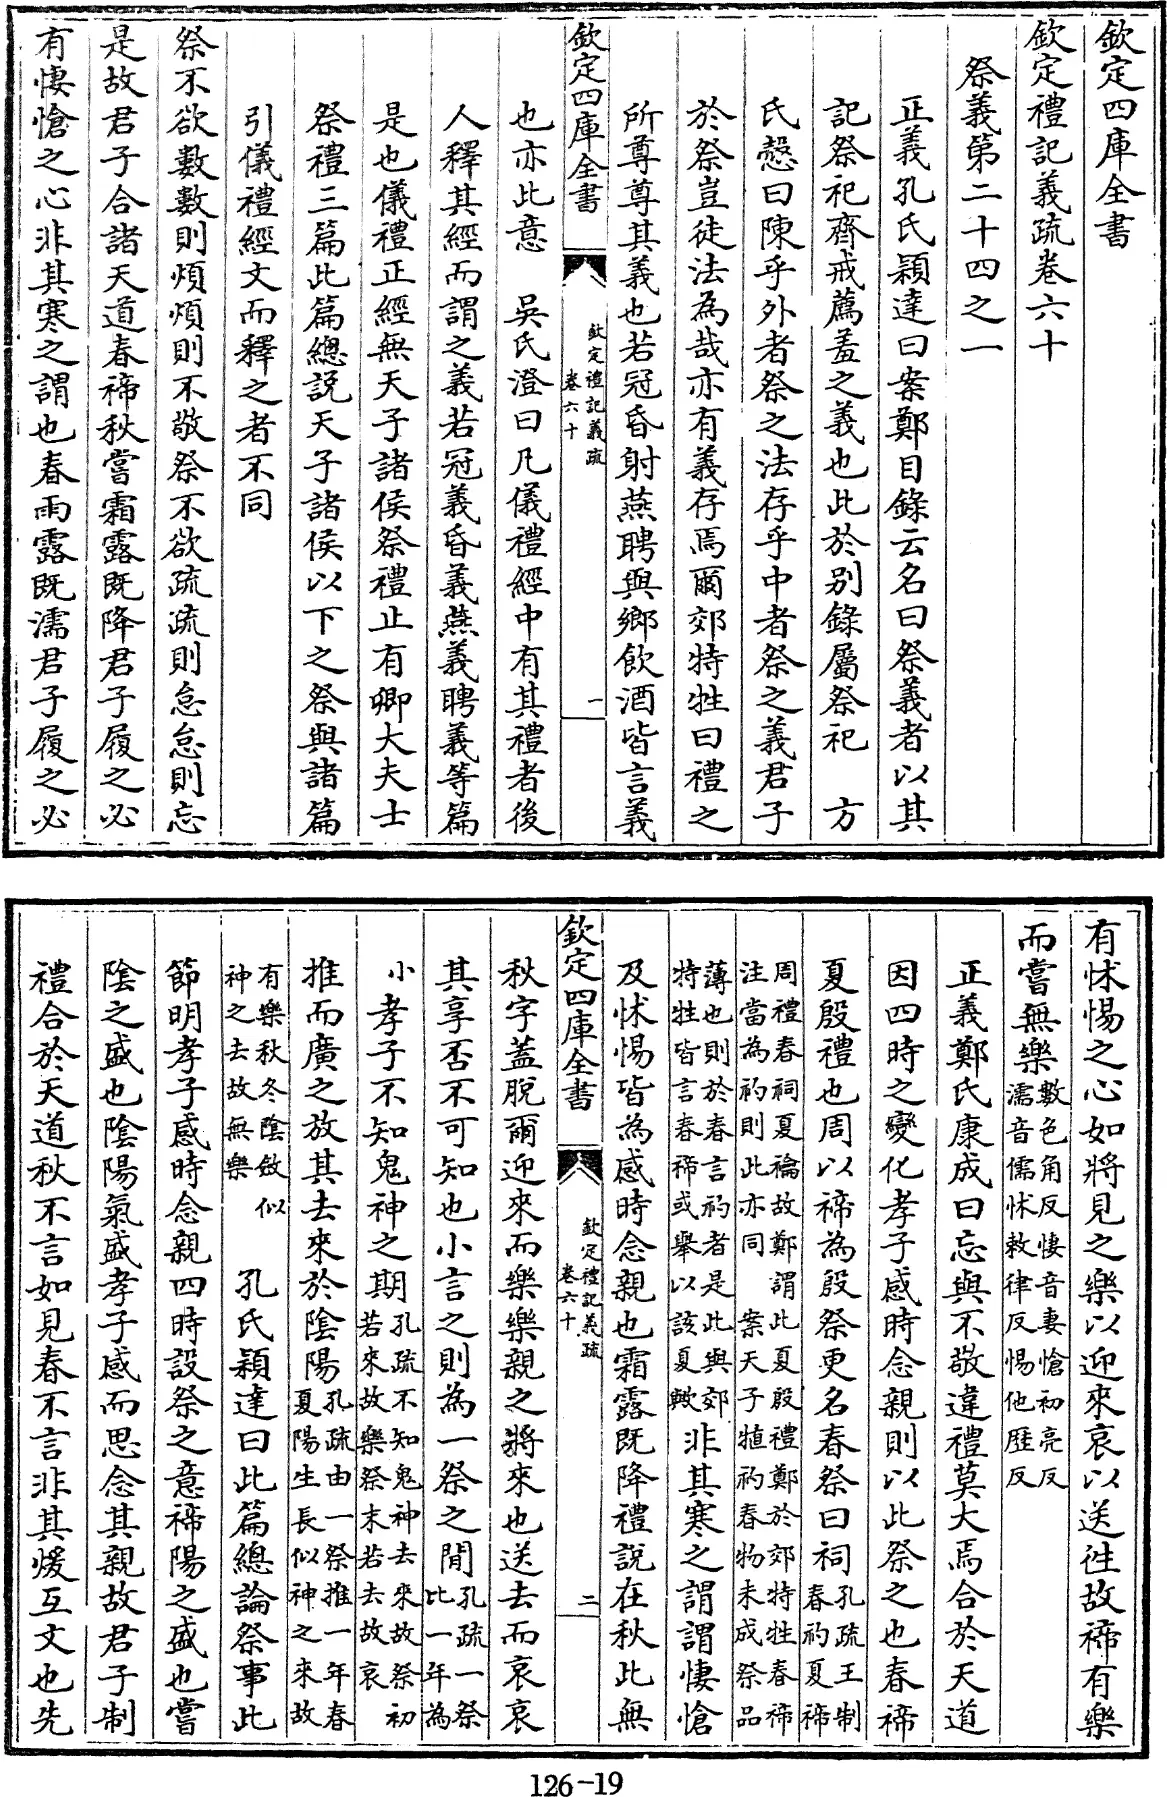 欽定四庫全書
欽定禮記義疏卷六十
祭義第二十四之一
正義孔氏穎達曰案鄭目錄云名曰祭義者以其
記祭祀齊戒薦羞之義也此於別錄屬祭祀　方
氏慤曰陳乎外者祭之法存乎中者祭之義君子
於祭豈徒法為哉亦有義存焉爾郊特牲曰禮之
所尊尊其義也若冠昏射燕聘與鄉飲酒皆言義
欽定四庫全書
欽定禮記義疏
卷六十
一
也亦此意　吳氏澄曰凡儀禮經中有其禮者後
人釋其經而謂之義若冠義昏義燕義聘義等篇
是也儀禮正經無天子諸侯祭禮止有卿大夫士
祭禮三篇此篇總説天子諸侯以下之祭與諸篇
引儀禮經文而釋之者不同
祭不欲數數則煩煩則不敬祭不欲疏疏則怠怠則忘
是故君子合諸天道春禘秋嘗霜露既降君子履之必
有悽愴之心非其寒之謂也春雨露既濡君子履之必
有怵惕之心如將見之樂以迎來哀以送往故禘有樂
而嘗無樂數色角反悽音妻愴初亮反
濡音儒怵敕律反惕他歷反
正義鄭氏康成曰忘與不敬違禮莫大焉合於天道
因四時之變化孝子感時念親則以此祭之也春禘
夏殷禮也周以禘為殷祭更名春祭曰祠孔疏王制
春礿夏禘
周禮春祠夏禴故鄭謂此夏殷禮鄭於郊特牲春禘
注當為礿則此亦同　案天子犆礿春物未成祭品
薄也則於春言礿者是此與郊
特牲皆言春禘或舉以該夏歟非其寒之謂謂悽愴
及怵惕皆為感時念親也霜露既降禮說在秋此無
欽定四庫全書
欽定禮記義疏
卷六十
二
秋字蓋脫爾迎來而樂樂親之將來也送去而哀哀
其享否不可知也小言之則為一祭之間孔疏一祭
比一年為
小孝子不知鬼神之期孔疏不知鬼神去來故祭初
若來故樂祭末若去故哀
推而廣之放其去來於陰陽孔疏由一祭推一年春
夏陽生長似神之來故
有樂秋冬陰斂似
神之去故無樂　孔氏穎達曰此篇總論祭事此
節明孝子感時念親四時設祭之意禘陽之盛也嘗
陰之盛也陰陽氣盛孝子感而思念其親故君子制
禮合於天道秋不言如見春不言非其煖互文也先
126-19